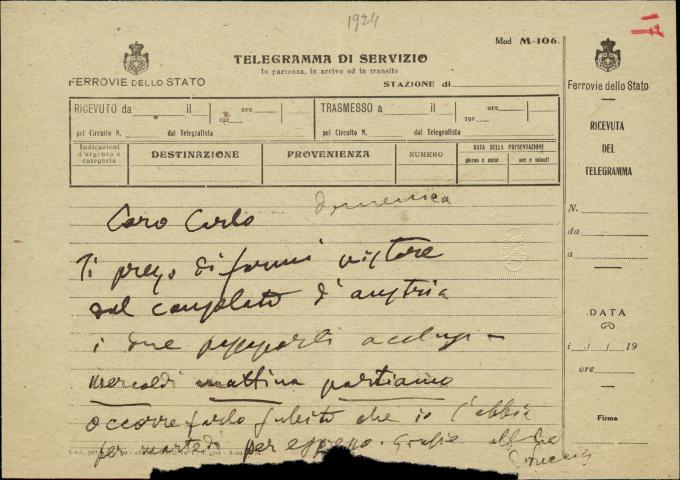 1924
Mod M-106.
TELEGRAMMA DI SERVIZIO
In partenza, in arrivo od in transito
FERROVIE DELLO STATO
STAZIONE di
RICEVUTO da il 192 ore
pel Circuito N. dal Telegrafista
TRASMESSO a il 192 ore
pel Circuito N. dal Telegrafista
Indicazioni d'urgenza e categoria
DESTINAZIONE
PROVENIENZA
NUMERO
DATA DELLA PRESENTAZIONE
giorno e mese
ore e minuti
Domenica
Caro Carlo
Ti prego di farmi vistare
dal consolato d'austria
i due passaporti acclusi -
mercoldi mattina partiamo
occorre farlo subito che io l'abbia
per martedì per espresso. Grazie
Ferrovie dello Stato
RICEVUTA
DEL
TELEGRAMMA
N.
da
a
DATA
i / / 19
ore
Firma